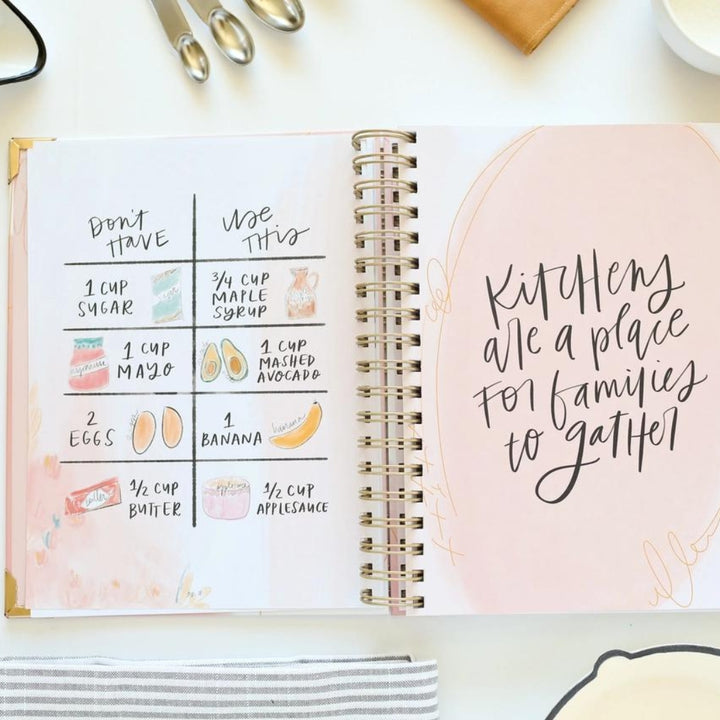 Don't
Have
Use
This
1 CUP
SUGAR
3/4 CUP
MAPLE
SYRUP
1 CUP
MAYO
1 CUP
MASHED
AVOCADO
2
EGGS
1
BANANA
banana
1/2 CUP
BUTTER
1/2 CUP
APPLESAUCE
Kitchens
are a place
for families
to gather